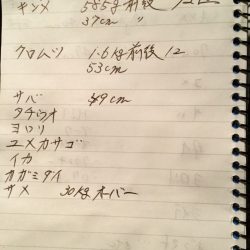 キンメ 585g前後 12匹
37cm 〃
クロムツ 1.6kg前後 12
53cm
サバ 49cm
タチウオ
ヨロリ
ユメカサゴ
イカ
カガミダイ
サメ 30kgオーバー